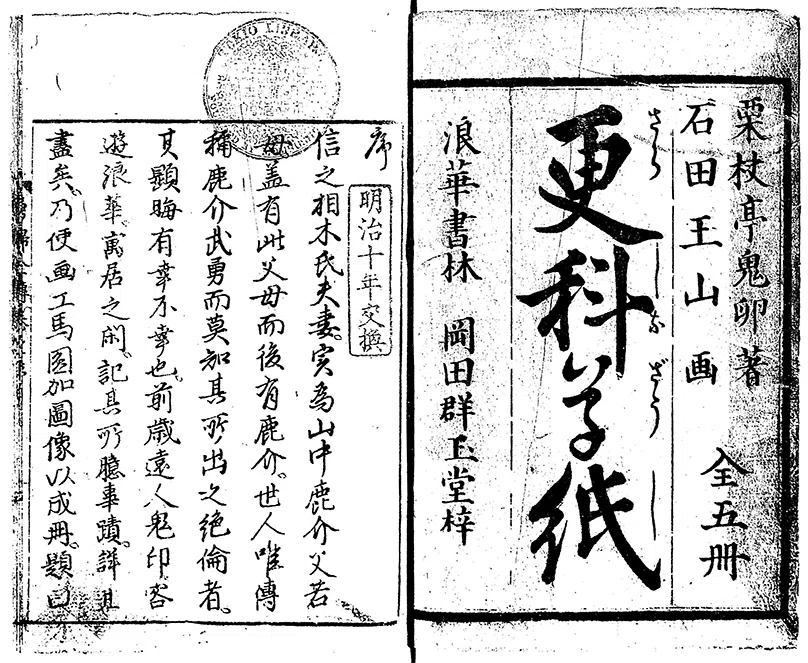 栗杖亭鬼卯著
石田玉山画 全五冊
さらしなざうし
更科草紙
浪華書林 岡田群玉堂梓
TOKIO LIBRARY
序
明治十年交換
信之相木氏夫妻。実為山中鹿介父若
母。蓋有此父母而後有鹿介。世人唯傳
稱鹿介武勇而莫知其所出之絶倫者。
其顕晦有幸不幸也。前歳遠人鬼卯客
遊浪華。寓居之間。記其所臆事蹟。詳且
盡矣。乃使画工馬圓加圖像以成冊。題曰